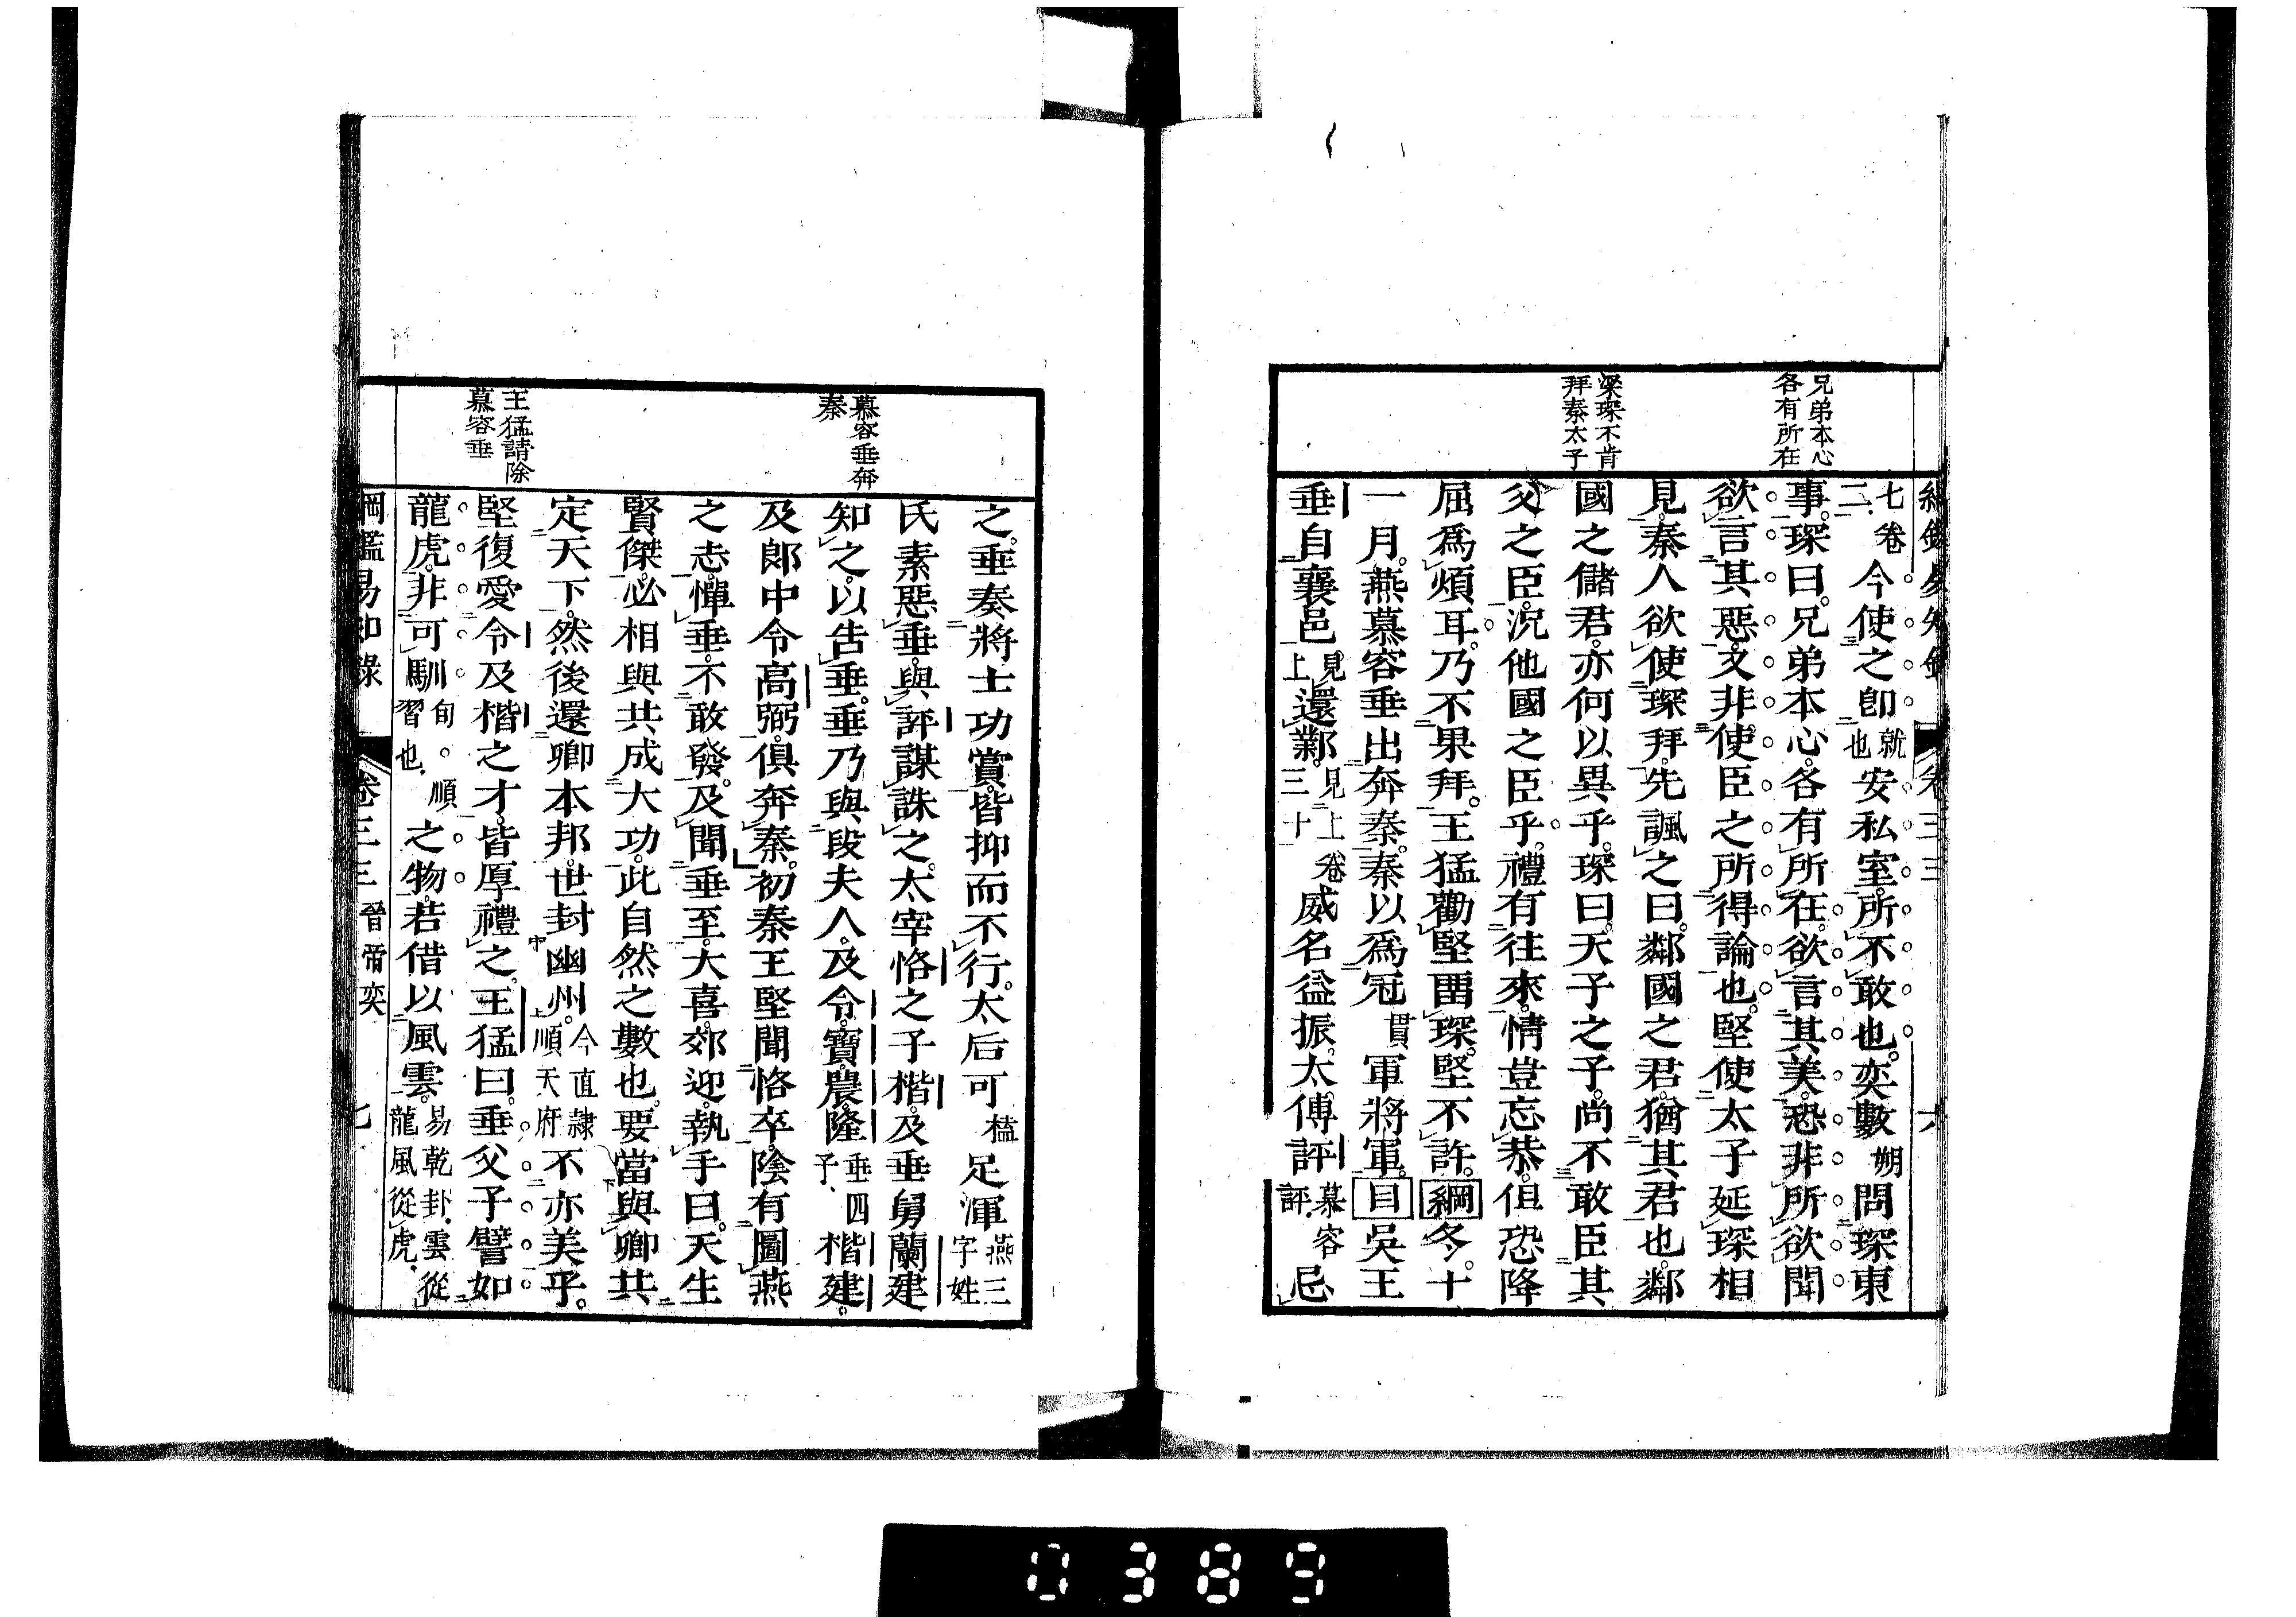 綱鑑易知錄 卷三三 六
兄弟本心
各有所在
梁琛不肯
拜秦太子
七卷二今使之卽就也安私室所不敢也奕數朔問琛東
事琛曰兄弟本心各有所在欲言其美恐非所欲聞
欲言其惡又非使臣之所得論也堅使太子延琛相
見秦人欲使琛拜先諷之曰鄰國之君猶其君也鄰
國之儲君亦何以異乎琛曰天子之子尚不敢臣其
父之臣況他國之臣乎禮有往來情豈忘恭但恐降
屈爲煩耳乃不果拜王猛勸堅畱琛堅不許綱冬十
一月燕慕容垂出奔秦秦以爲冠貫軍將軍目吳王
垂自襄邑見上還鄴見上卷三十威名益振太傅評慕容評忌
慕容垂奔
秦
王猛請除
慕容垂
之垂奏將士功賞皆抑而不行太后可榼足渾燕三字姓
氏素惡垂與評謀誅之太宰恪之子楷及垂舅蘭建
知之以告垂垂乃與段夫人及令寶農隆垂四子楷建
及郎中令高弼俱奔秦初秦王堅聞恪卒陰有圖燕
之志憚垂不敢發及聞垂至大喜郊迎執手曰天生
賢傑必相與共成大功此自然之數也要當與卿共
定天下然後還卿本邦世封幽州今直隸順天府不亦美乎
堅復愛令及楷之才皆厚禮之王猛曰垂父子譬如
龍虎非可馴旬順習也之物若借以風雲易乾卦雲從龍風從虎
綱鑑易知錄 卷三三 晉帝奕 七
0389